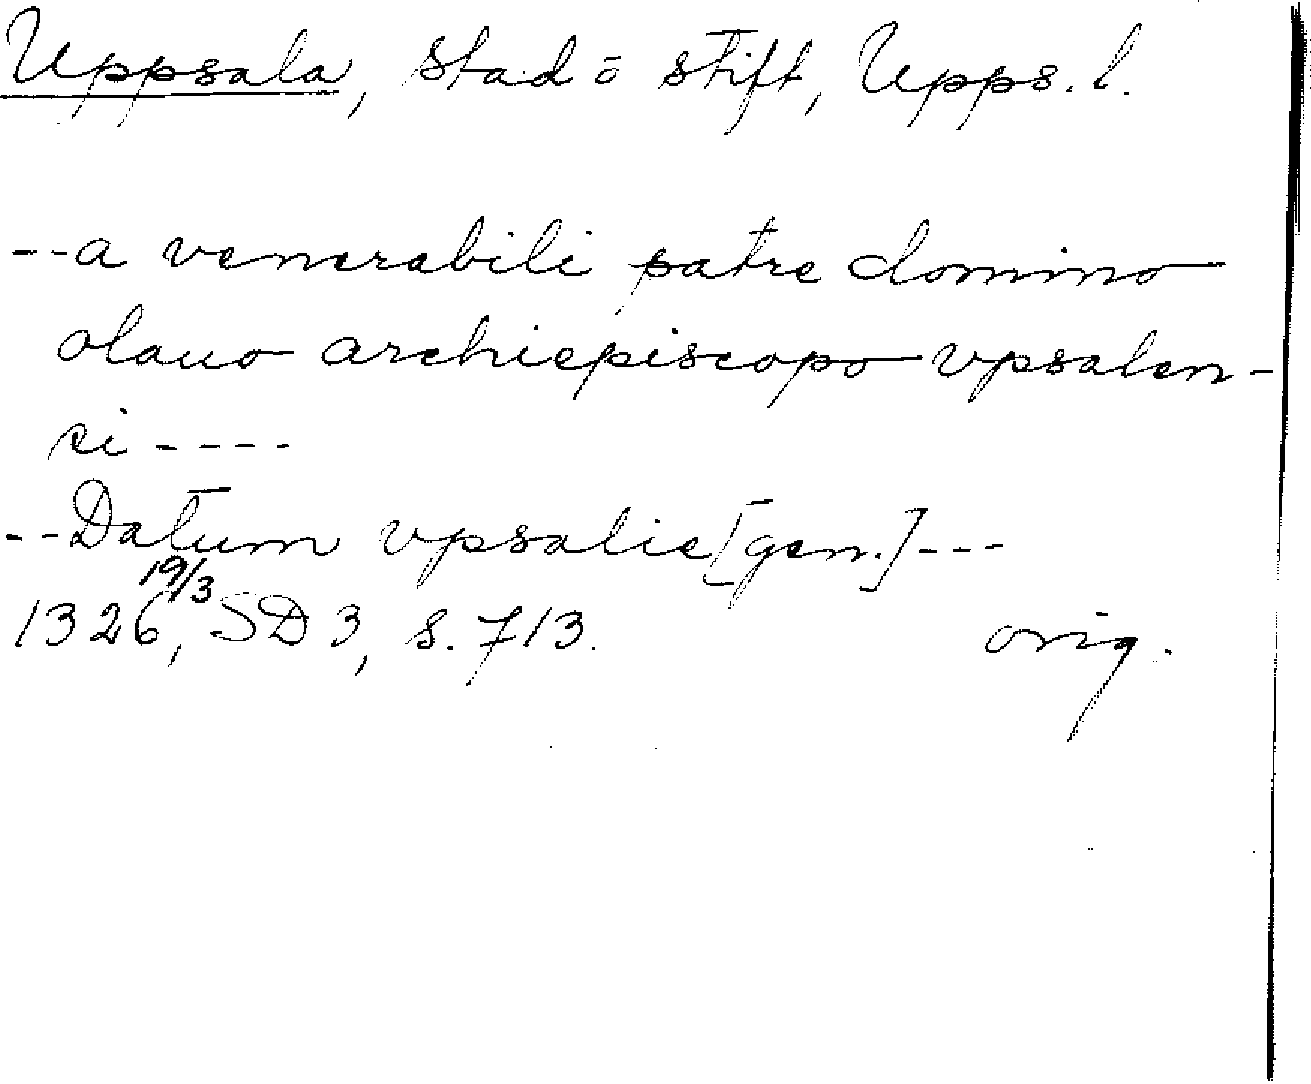 Uppsala, stad ō stift, Upps. l.
--a venerabili patre domino
olauo archiepiscopo vpsalen-
si ----
--Datum vpsalie [gen.] ---
19/3
1326, SD 3, s. 713. orig.